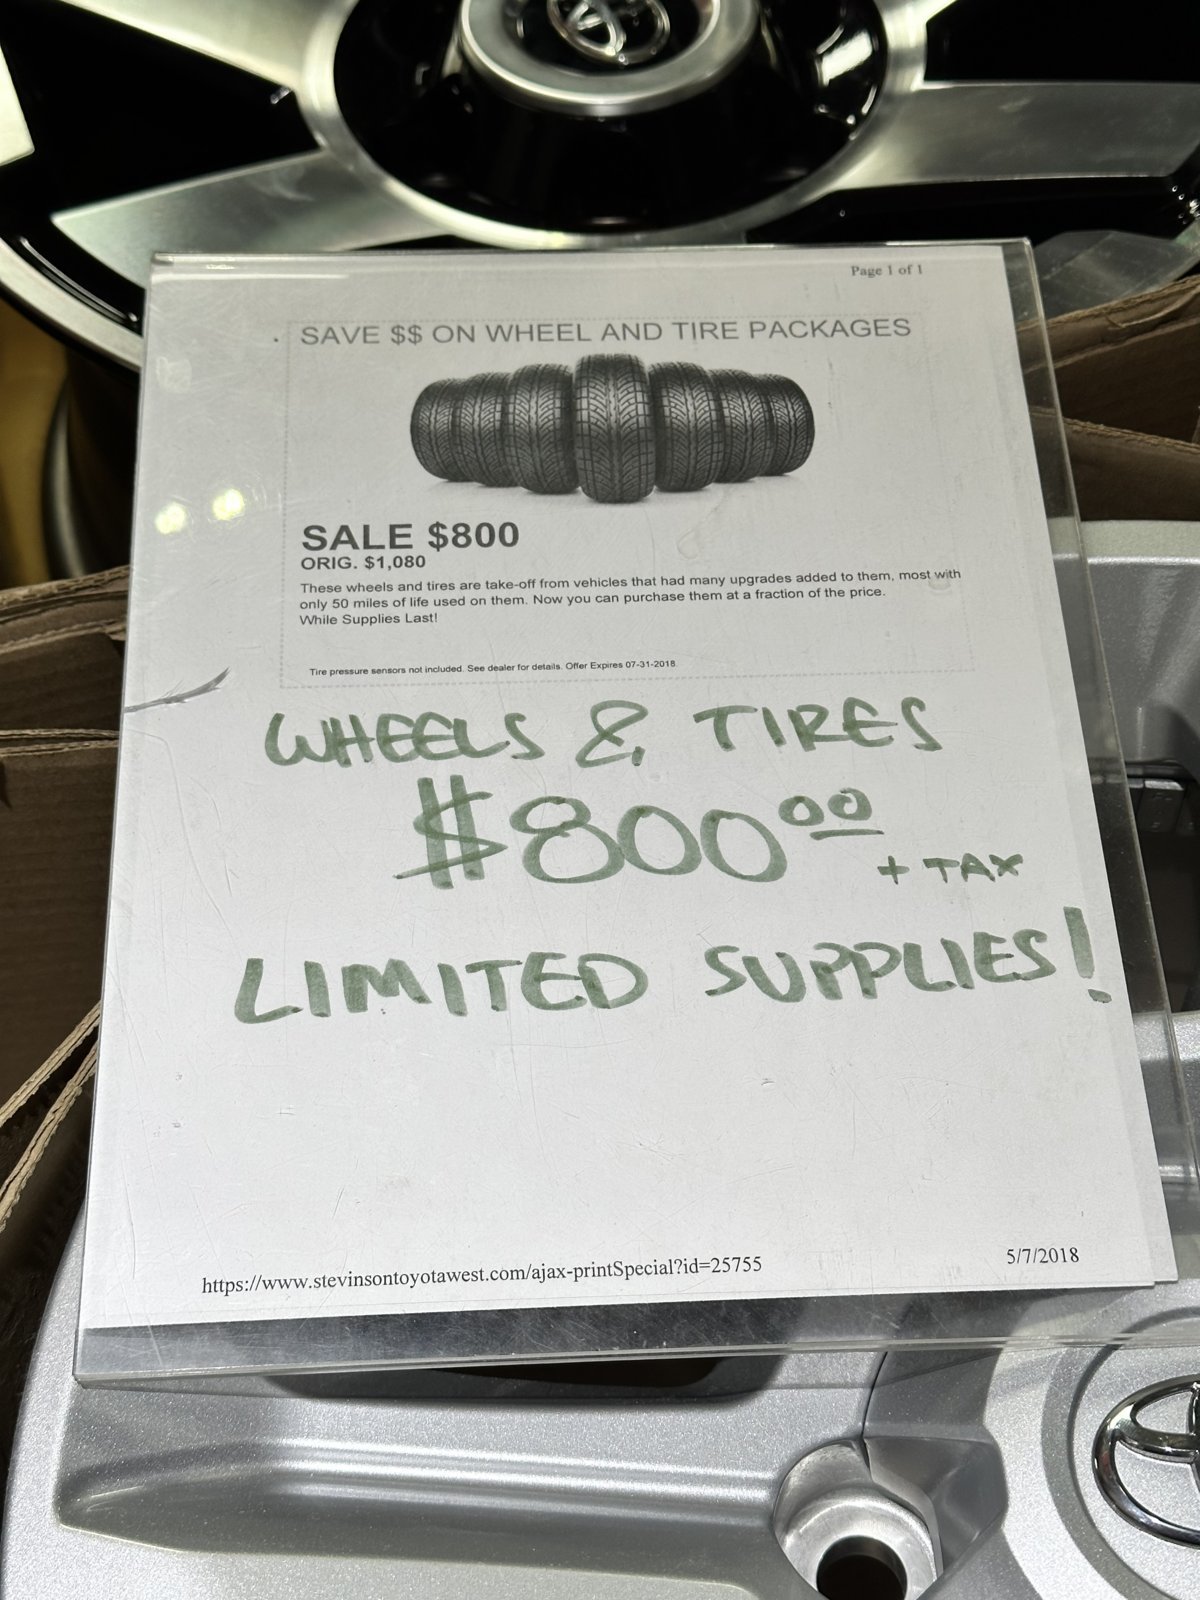 Page 1 of 1
SAVE $$ ON WHEEL AND TIRE PACKAGES
SALE $800
ORIG. $1,080
These wheels and tires are take-off from vehicles that had many upgrades added to them, most with
only 50 miles of life used on them. Now you can purchase them at a fraction of the price.
While Supplies Last!
Tire pressure sensors not included. See dealer for details. Offer Expires 07-31-2018.
WHEELS & TIRES
$800 00
+ TAX
LIMITED SUPPLIES!
https://www.stevinsontoyotawest.com/ajax-printSpecial?id=25755
5/7/2018